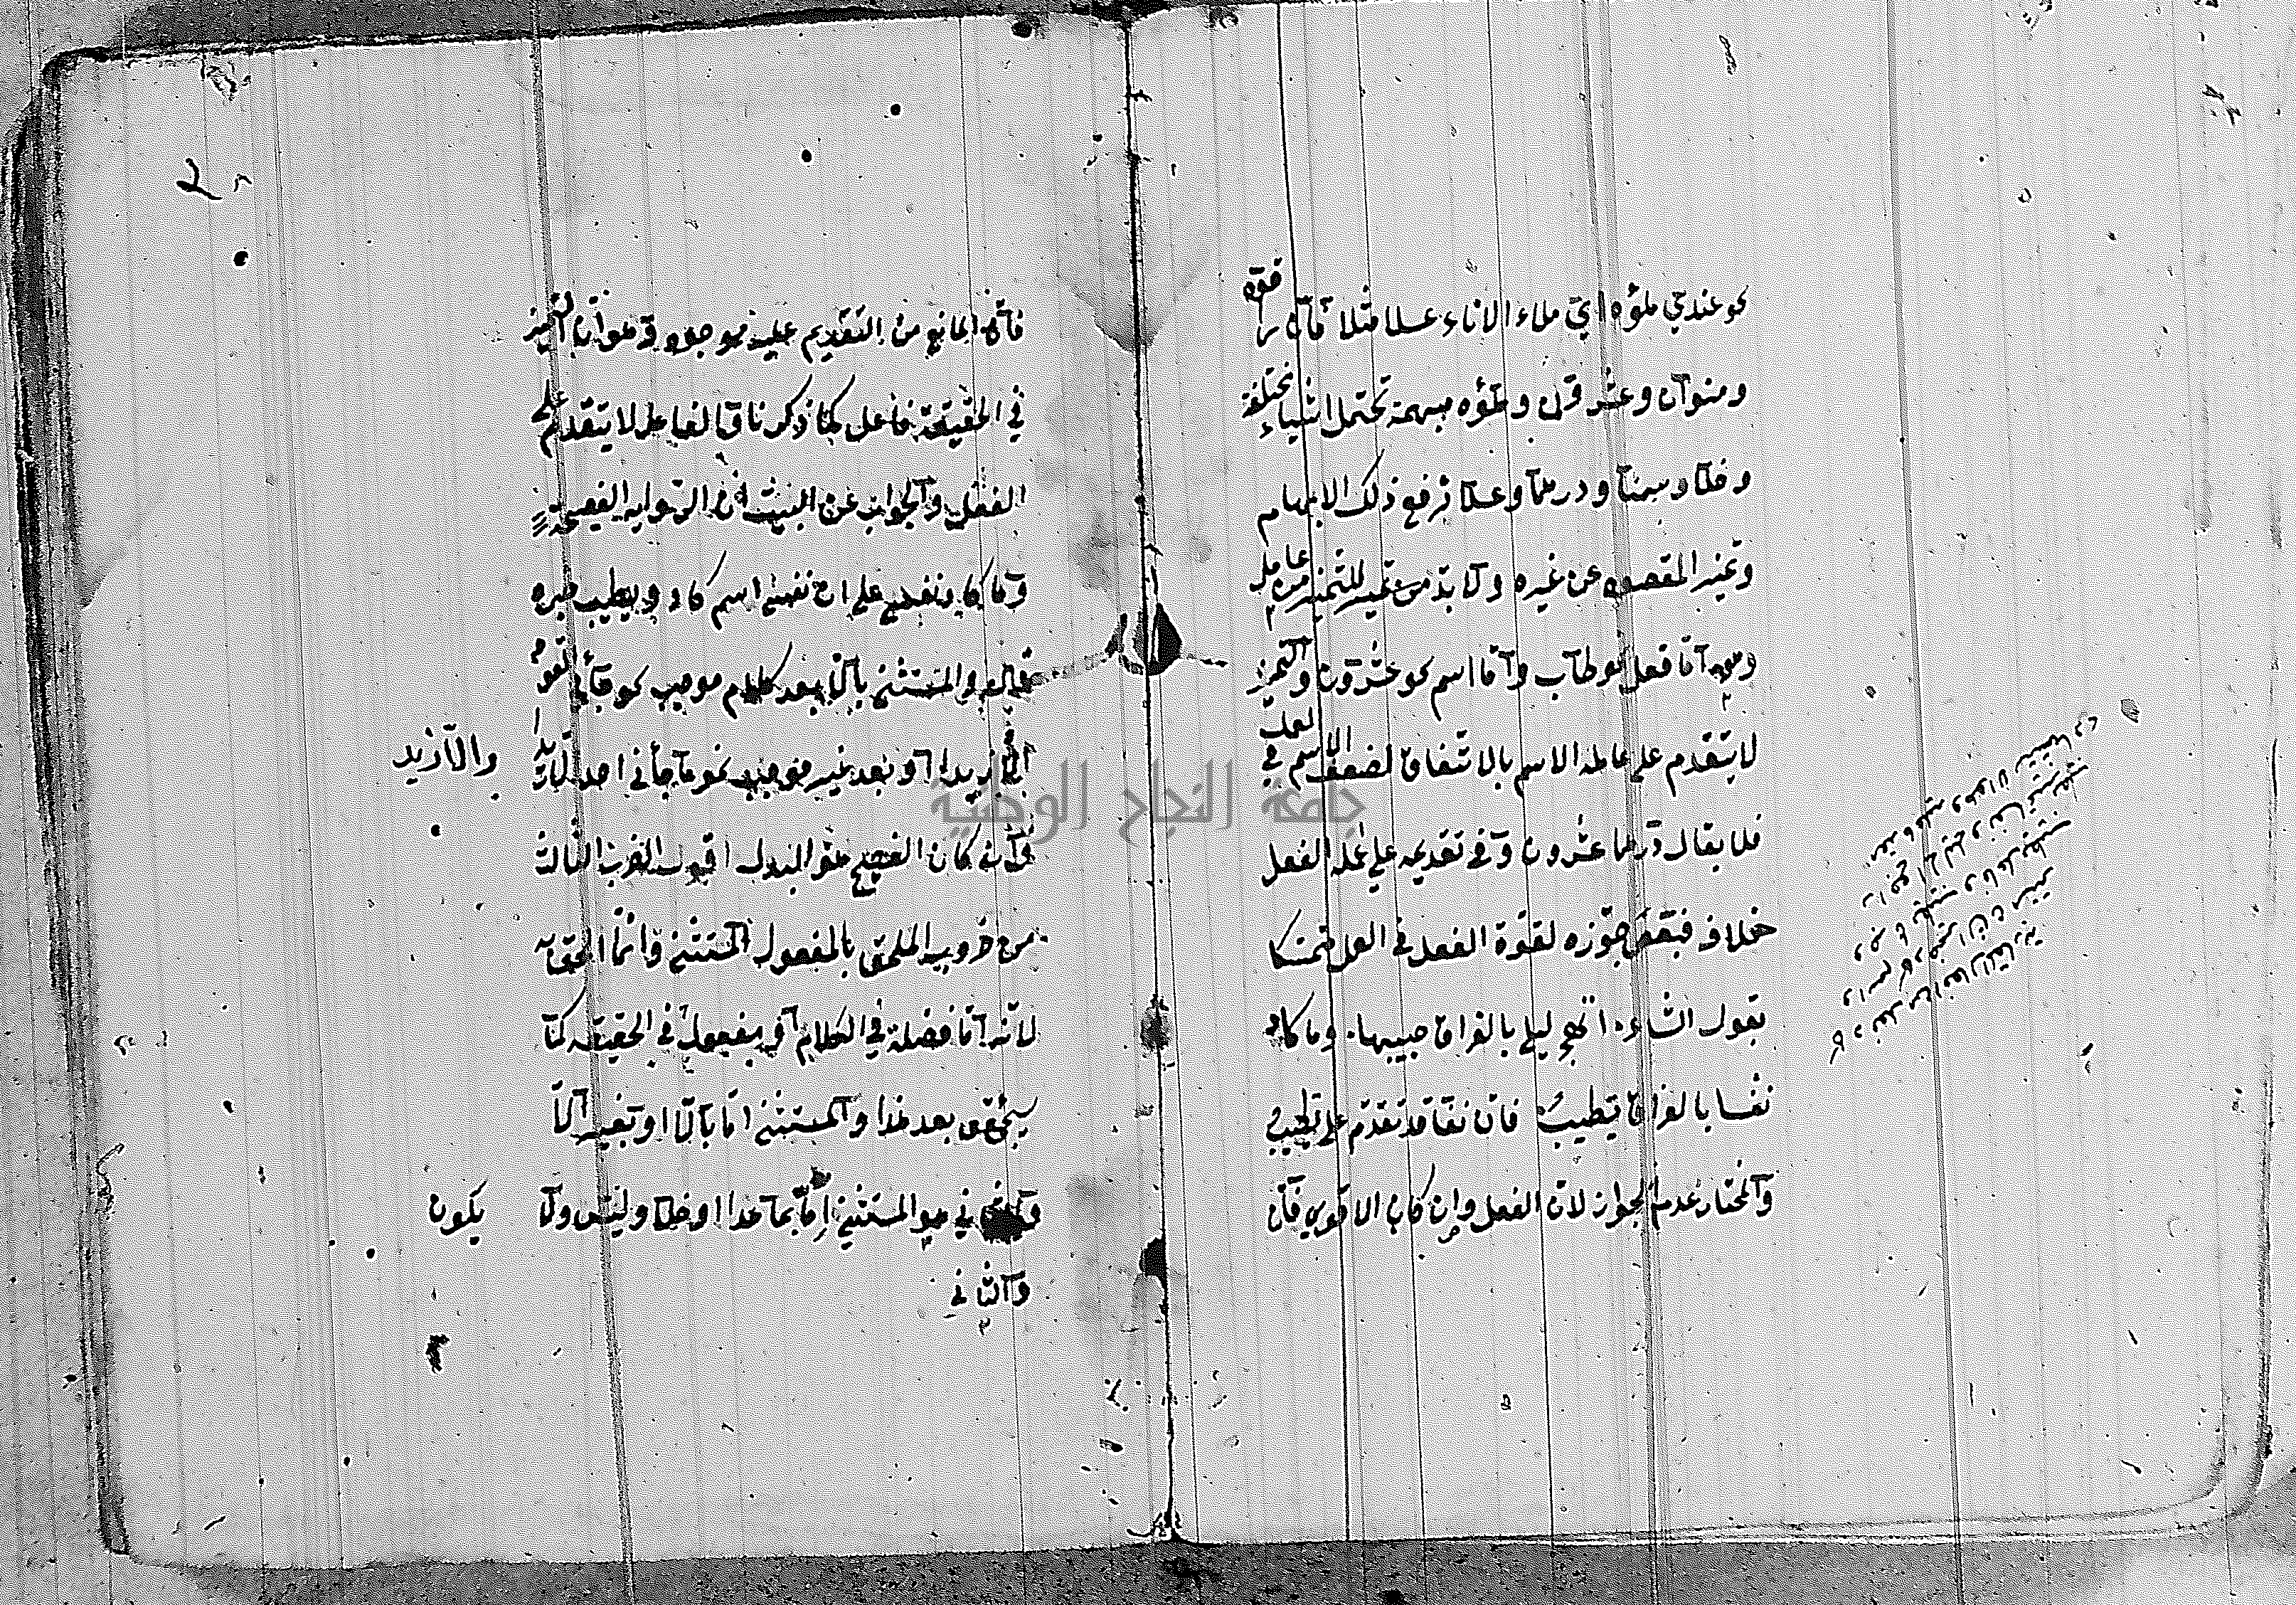 نحو عندي ملؤه اي ملاء الاناء عسلا مثلا فان قوله
ومنوان وعشرون وملؤه مبهمة تحتمل اشياء مختلفة
وخلا وسمنا ودرهما وعسلا ترفع ذلك الابهام
وتميز المقصود عن غيره ولا بد من للتميز من عامل
وهو اما فعل نحو طاب واما اسم نحو عشرون والتميز
لا يتقدم على عامله الاسم بالاتفاق لضعف الاسم في العمل
فلا يقال درهما عشرون وفي تقديمه على عامله الفعل
خلاف فبعض جوزه لقوة الفعل في العمل متمسكا
بقول الشاعر اتهجر ليلى بالفراق حبيبها وما كاد
نفسا بالفراق تطيب فان نفسا قد تقدم على تطيب
والمختار عدم الجواز لان الفعل وان كان الاقوى فان
فان المانع من التقديم عليه موجود وهو ان التميز
في الحقيقة فاعل كما ذكرنا والفاعل لا يتقدم على
الفعل والجواب عن البيت ان الرواية الفصيحة
وما كاد نفسي على ان نفسي اسم كاد ويطيب خبره
قال والمستثنى بالا بعد كلام موجب نحو جاءني القوم
الا زيدا او بعد غير موجب نحو ما جاءني احد الا زيدا
والا زيد
وان كان الفصيح هو البدل اقول الضرب الثالث
من ضروب الملحق بالمفعول المستثنى وانما الحق به
لانه اما فضلة في الكلام او مفعول في الحقيقة كما
سيحقق بعد هذا والمستثنى اما بالا او بغير الا
والثاني هو المستثنى اما بما عدا او خلا وليس ولا يكون
والثاني
جامعة النجاح الوطنية